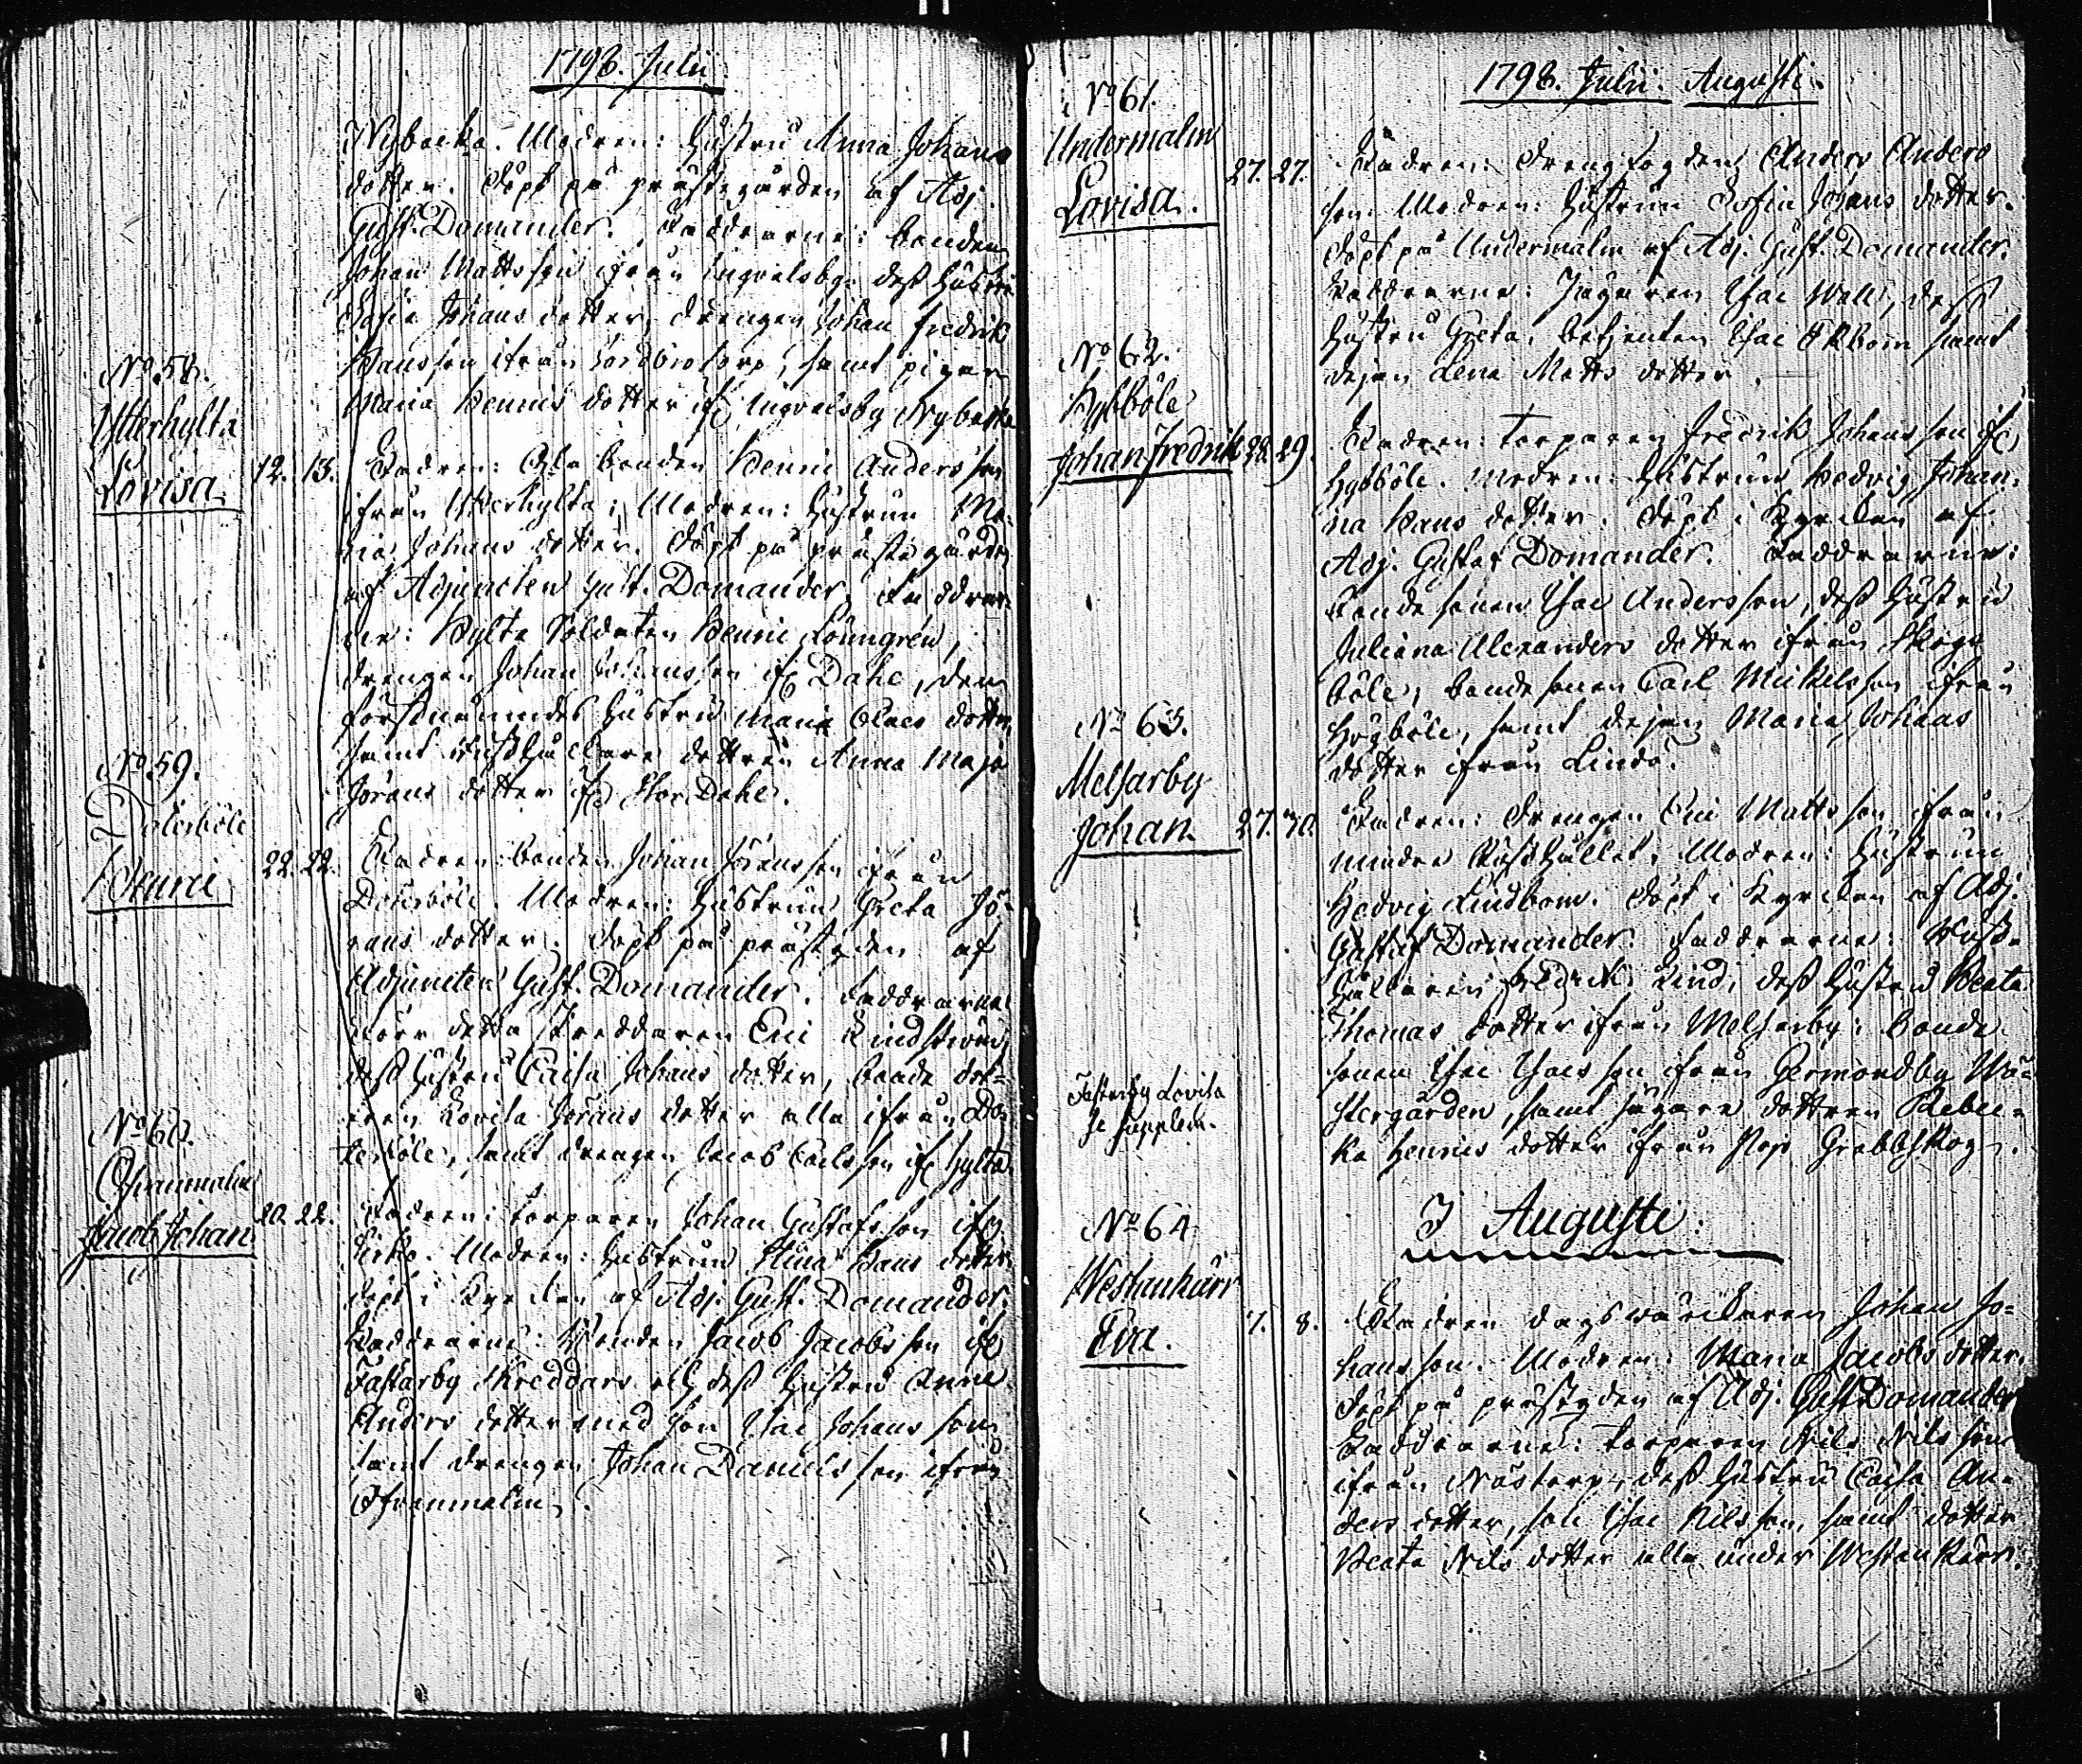 1798. Julii
Nybacka. Modren: Hustru Anna Johans
dotter. Döpt på prästegården af Adj.
Gust. Domander. Faddrarne: bonden
Johan Mattsson ifrån Ingvalsby dess Hustru
Sofia Jörans dotter, drengen Johan Fredrik
Hansson ifrån torp, samt pigan
Maria Henriks dotter ifr. Ingvalsby Nybacka
No 58.
Ytterkylta
Lovisa
12. 13.
Fadren: bonden Henric Andersson
ifrån Ytterkylta; Modren: Hustrun Ma-
ria Johans dotter. Döpt på prästegården
af Adjuncten Gust. Domander, Faddrar-
ne: Kylta Soldaten Henric Loungren,
drengen Johan Johansson ifr. Dahl, den
förstnemndes Hustru Maria Claes dotter,
samt dottren Anna Maja
Jörans dotter ifr. Stor Dahl.
No 59.
Dalerböle
Henric
22. 22.
Fadren: bonden Johan Jöransson ifrån
Dalerböle. Modren: Hustrun Greta Jö-
rans dotter. Döpt på prästgden af
Adjuncten Gust. Domander. Faddrarne
detta Skreddaren Eric Lindström,
dess Hustru Caisa Johans dotter, bonde dot-
tren Lovisa Jörans dotter alla ifrån Da-
lerböle, samt drengen Jacob Carlsson ifr. Kylta
No 60.
Ofvanmalm
Jacob Johan
20. 22.
Fadren: torparen Johan Gustafsson ifr.
Modren: Hustrun Stina Hans dotter
döpt i Kyrckan af Adj. Gust. Domander.
Faddrarne: Bonden Jacob Jacobsson ifr.
Fastarby Skreddars och dess Hustru Anna
Anders dotter med son Isac Johansson
samt drengen Johan Danielsson ifrån
Ofvanmalm.
1798. Julii. Augusti.
No 61.
Undermalm
Lovisa.
27. 27.
Fadren: Drengfogden Anders Anders
son. Modren: Hustrun Sofia Johans dotter.
Döpt på Undermalm af Adj. Gust. Domander.
Faddrarne: Jägaren Isac Wall, dess
Hustru Greta, betjenten Isac Ekbom samt
dejan Lena Matts dotter.
No 62.
Hybböle
Johan Fredrik
28. 29.
Fadren: torparen Fredrik Johansson ifr.
Hybböle. Modren: Hustrun Hedvig Johan-
na Hans dotter. Döpt i Kyrckan af
Adj. Gustaf Domander. Faddrarne:
Bonde sonen Isac Andersson, dess Hustru
Juliana Alexanders dotter ifrån Skogs
böle, bonde sonen Carl Mickelsson ifrån
Högböle, samt dejan Maria Johans
dotter ifrån Lindö.
No 63.
Melsarby
Johan
27. 30.
Fadren: Drengen Eric Mattsson ifrån
mindre Rusthållet, Modren: Hustrun
Hedvig Lindbom. Döpt i Kyrckan af Adj.
Gustaf Domander. Faddrarne: Rust-
hållaren Fredrick Lind, dess Hustru Beata
Thomas dotter ifrån Melsarby: bonde
sonen Isac Isacsson ifrån Germundby Wä-
stergården, samt dottren Rebec-
ka Henrics dotter ifrån Pojo Grabbskog.
Fastarby Lovisa
Se supplem.
I Augusti.
No 64
Westankärr
Eva.
7. 8.
Fadren dagswärckaren Johan Jo-
hansson. Modren: Maria Jacobs dotter.
Döpt på prästgden af Adj. Gust. Domander
Faddrarne: torparen Nils Nilsson
ifrån Nästorp, dess Hustru Caisa An-
ders dotter, son Isac Nilsson, samt dotter
Beata Nils dotter alla under Westankärr.